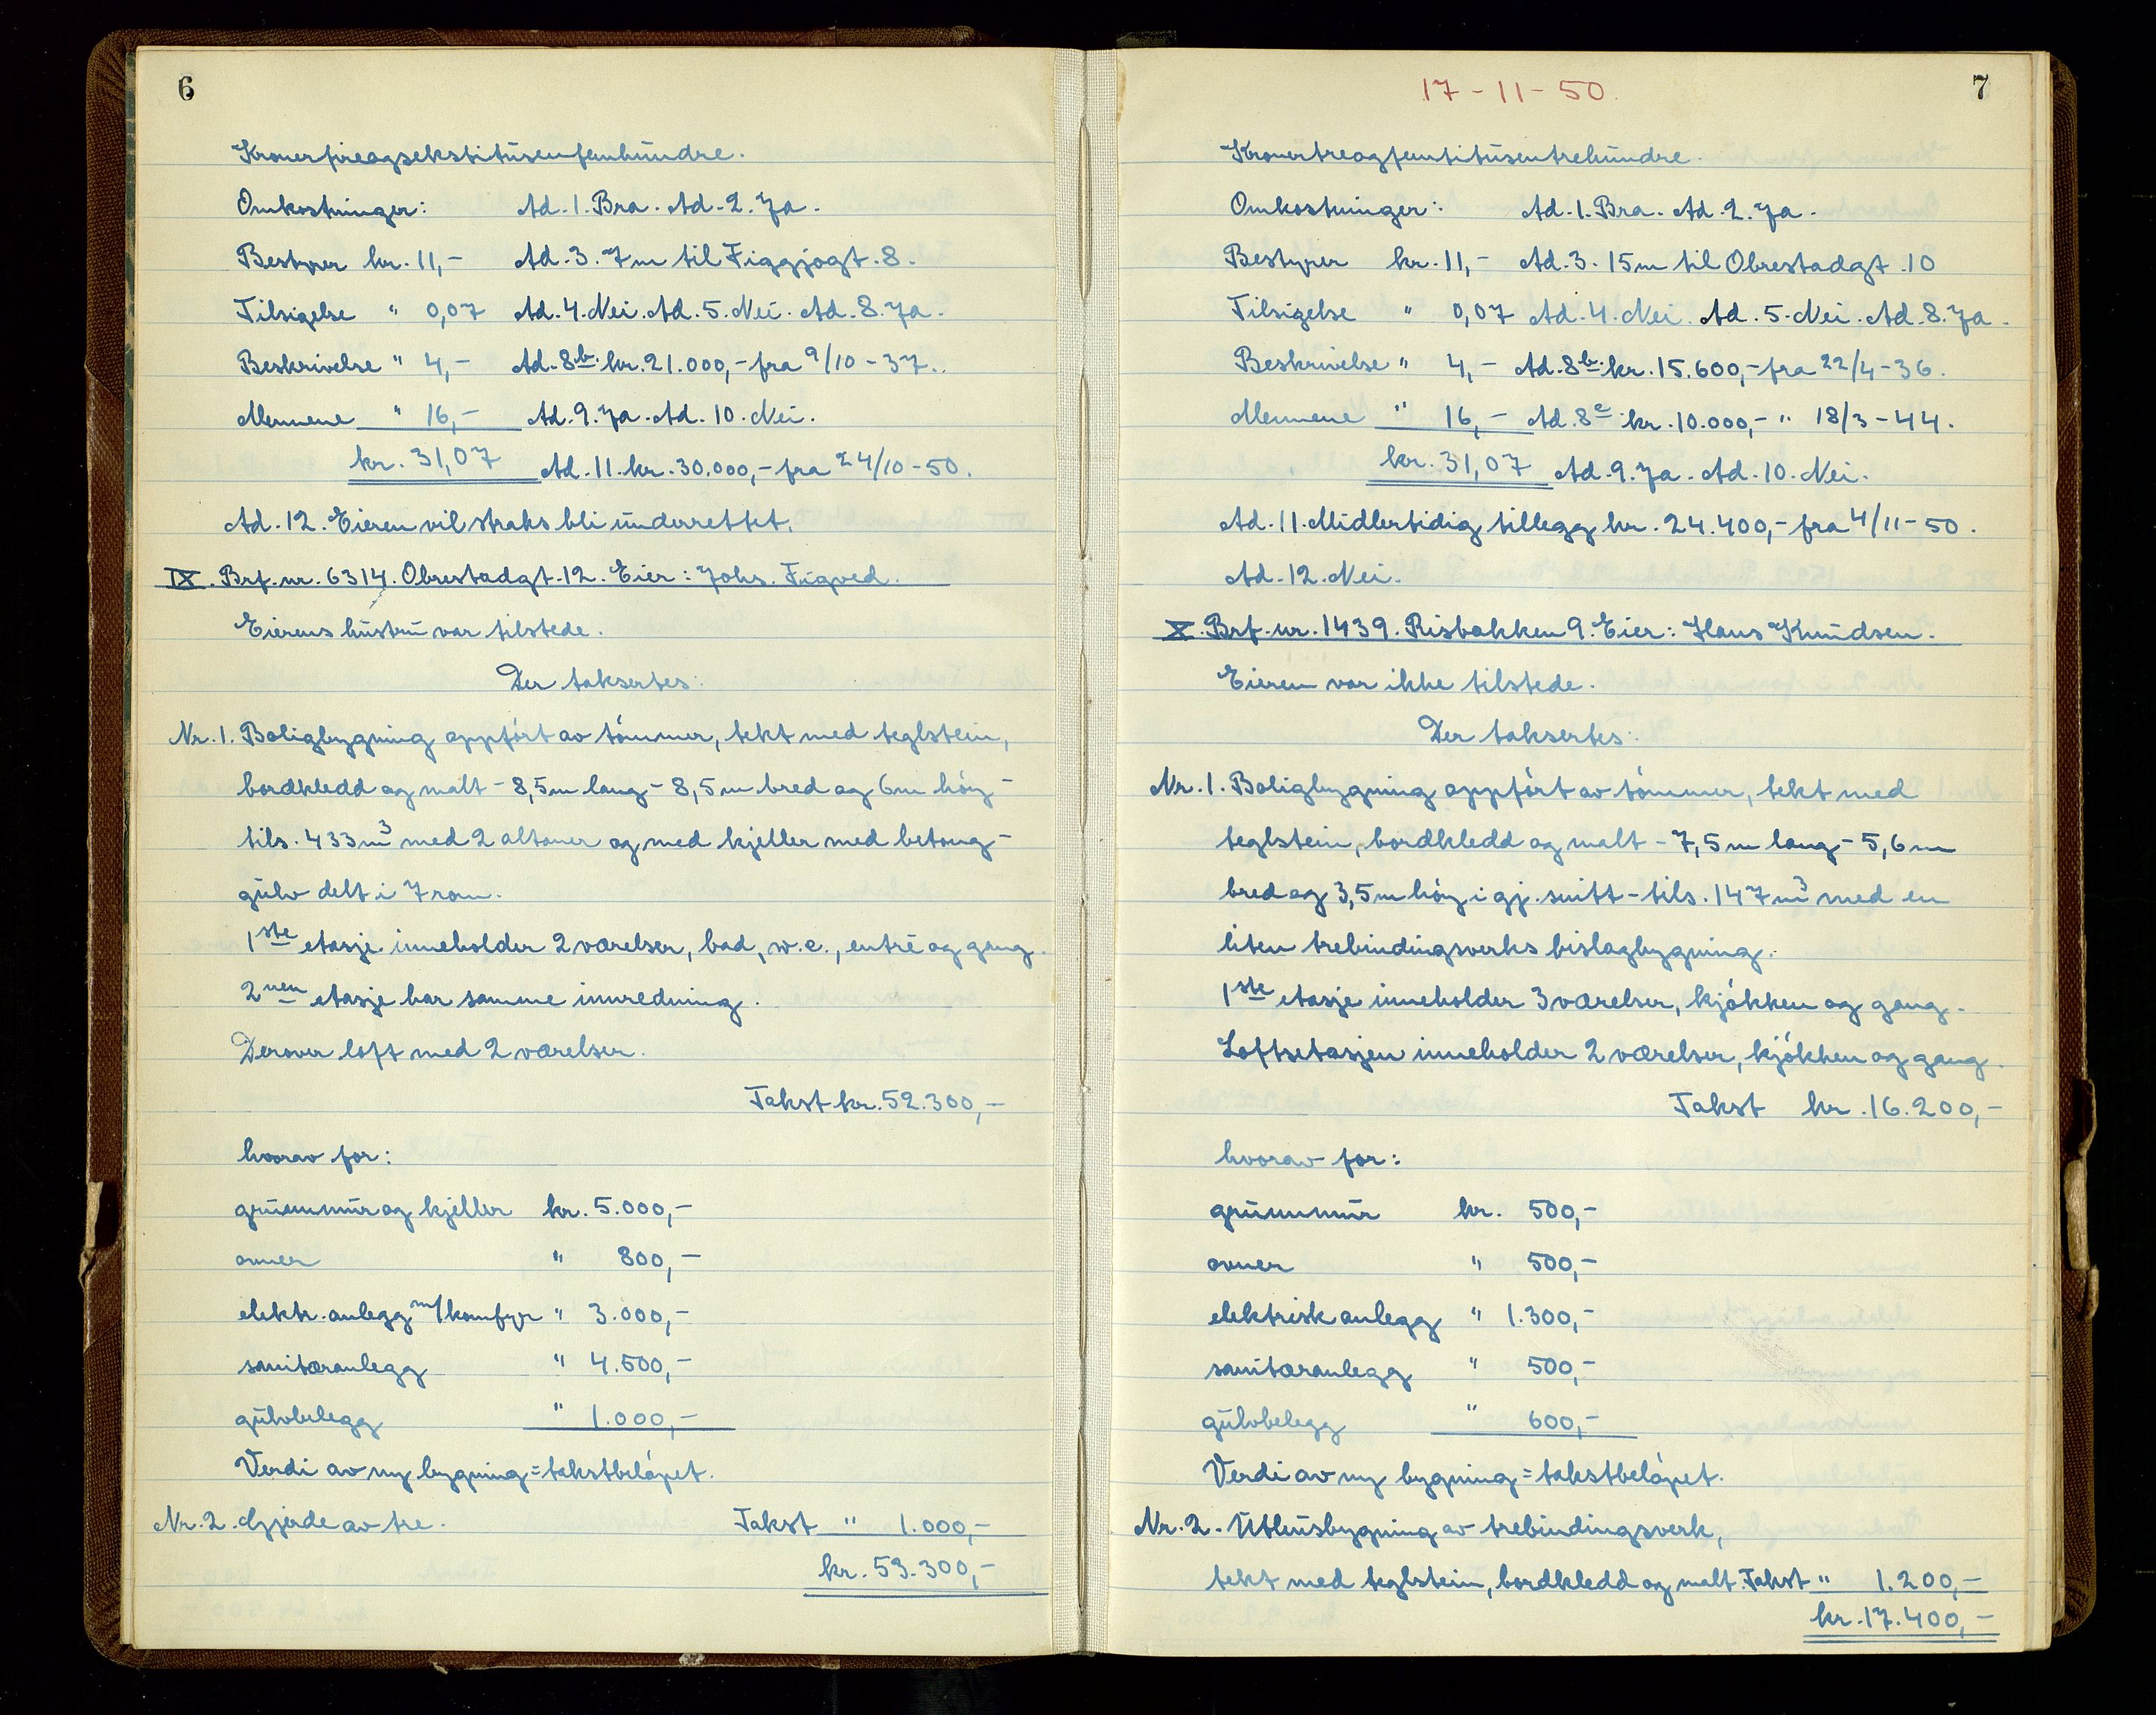 6
Kronerfireogsekstitusenfemhundre.
Omkostninger: Ad. 1. Bra. Ad. 2. Ja.
Bestyrer kr. 11,- Ad. 3. 7m til Figgjogt. 8.
Tilsigelse " 0,07 Ad. 4. Nei. Ad. 5. Nei. Ad. 8. Ja.
Beskrivelse " 4,- Ad. 8b. kr. 21.000,- fra 9/10-37.
Mennene " 16,- Ad. 9. Ja. Ad. 10. Nei.
kr. 31,07 Ad. 11. kr. 30.000,- fra 24/10-50.
Ad. 12. Eieren vil straks bli underrettet.
IX. Brf. nr. 6314. Obrestadgt. 12. Eier: Johs. Figved.
Eierens hustru var tilstede.
Der taksertes:
Nr. 1. Boligbygning oppført av tømmer, tekt med teglstein,
bordkledd og malt - 8,5m lang - 8,5m bred og 6m høy -
tils. 433m³ med 2 altaner og med kjeller med betong-
gulv delt i 7 rom.
1ste etasje inneholder 2 værelser, bad, w.c., entré og gang.
2nen etasje har samme innredning.
Derover loft med 2 værelser.
Takst kr. 52.300,-
hvorav for:
grunnmur og kjeller kr. 5.000,-
ovner " 800,-
elektr. anlegg m/komfyr " 3.000,-
sanitæranlegg " 4.500,-
gulvbelegg " 1.000,-
Verdi av ny bygning = takstbeløpet.
Nr. 2. Gjerde av tre. Takst " 1.000,-
kr. 53.300,-
17-11-50.
7
Kronertreogfemtitusentrehundre.
Omkostninger: Ad. 1. Bra. Ad. 2. Ja.
Bestyrer kr. 11,- Ad. 3. 15m til Obrestadgt. 10
Tilsigelse " 0,07 Ad. 4. Nei. Ad. 5. Nei. Ad. 8. Ja.
Beskrivelse " 4,- Ad. 8b. kr. 15.600,- fra 22/4-36.
Mennene " 16,- Ad. 8c. kr. 10.000,- " 18/3-44.
kr. 31,07 Ad. 9. Ja. Ad. 10. Nei.
Ad. 11. Midlertidig tillegg kr. 24.400,- fra 4/11-50.
Ad. 12. Nei.
X. Brf. nr. 1439. Risbakken 9. Eier: Hans Knudsen.
Eieren var ikke tilstede.
Der taksertes:
Nr. 1. Boligbygning oppført av tømmer, tekt med
teglstein, bordkledd og malt - 7,5m lang - 5,6m
bred og 3,5m høy i gj. snitt - tils. 147m³ med en
liten trebindingsverks bislagbygning.
1ste etasje inneholder 3 værelser, kjøkken og gang.
Loftsetasjen inneholder 2 værelser, kjøkken og gang.
Takst kr. 16.200,-
hvorav for:
grunnmur kr. 500,-
ovner " 500,-
elektrisk anlegg " 1.300,-
sanitæranlegg " 500,-
gulvbelegg " 600,-
Verdi av ny bygning = takstbeløpet.
Nr. 2. Uthusbygning av trebindingsverk,
tekt med teglstein, bordkledd og malt. Takst " 1.200,-
kr. 17.400,-